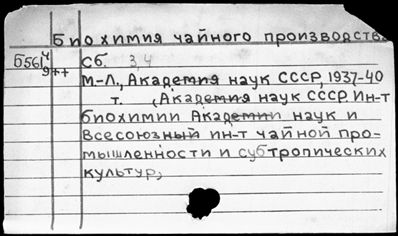 Биохимия чайного производства
Б561 4/9++ Сб. 3,4
М-Л., Академия наук СССР, 1937-40
т. (Академия наук СССР. Ин-т
биохимии Академии наук и
Всесоюзный ин-т чайной про-
мышленности и субтропических
культур,